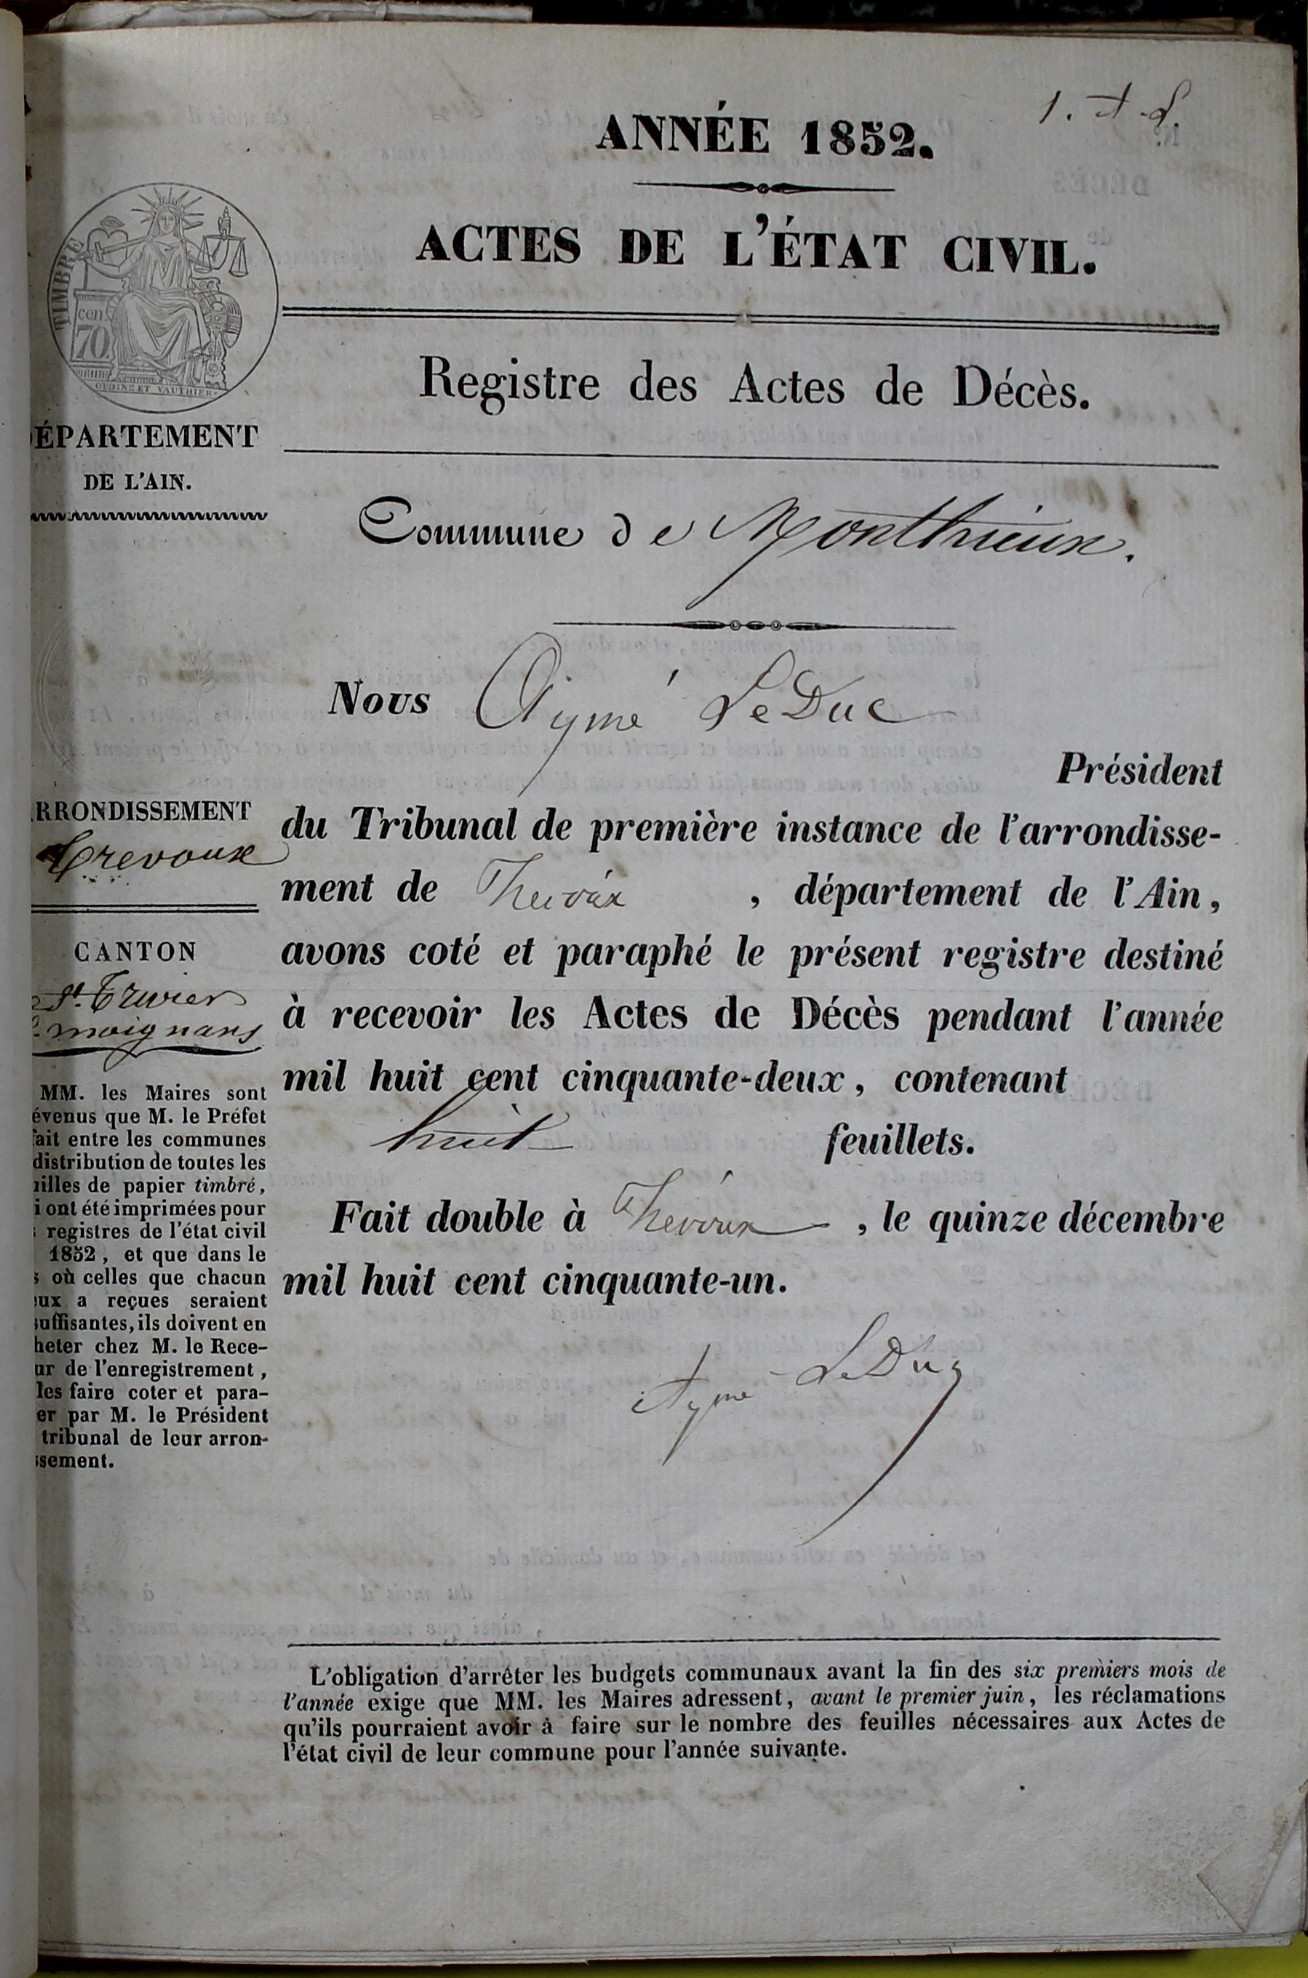 1. A. L.
ANNÉE 1852.
ACTES DE L'ÉTAT CIVIL.
Registre des Actes de Décès.
Commune de Monthieux.
TIMBRE
cen.
70
OUDINÉ ET VAUTHIER
ÉPARTEMENT
DE L'AIN.
RRONDISSEMENT
Trevoux
CANTON
St. Trivier
moignans
MM. les Maires sont
évenus que M. le Préfet
fait entre les communes
distribution de toutes les
uilles de papier timbré,
i ont été imprimées pour
s registres de l'état civil
1852, et que dans le
s où celles que chacun
eux a reçues seraient
suffisantes, ils doivent en
heter chez M. le Rece-
ur de l'enregistrement,
les faire coter et para-
er par M. le Président
tribunal de leur arron-
ssement.
Nous Aymé LeDuc
Président
du Tribunal de première instance de l'arrondisse-
ment de Trévoux, département de l'Ain,
avons coté et paraphé le présent registre destiné
à recevoir les Actes de Décès pendant l'année
mil huit cent cinquante-deux, contenant
huit feuillets.
Fait double à Trévoux, le quinze décembre
mil huit cent cinquante-un.
Aymé LeDuc
L'obligation d'arrêter les budgets communaux avant la fin des six premiers mois de
l'année exige que MM. les Maires adressent, avant le premier juin, les réclamations
qu'ils pourraient avoir à faire sur le nombre des feuilles nécessaires aux Actes de
l'état civil de leur commune pour l'année suivante.